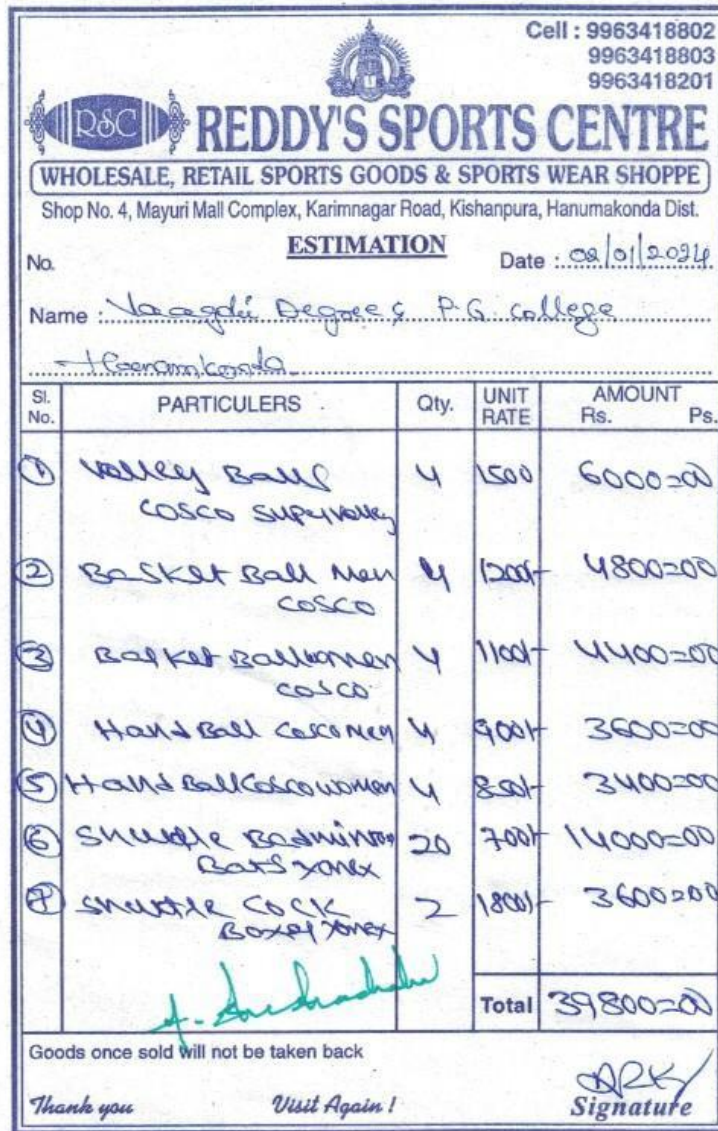 Cell : 9963418802
9963418803
9963418201
RSC
REDDY'S SPORTS CENTRE
WHOLESALE, RETAIL SPORTS GOODS & SPORTS WEAR SHOPPE
Shop No. 4, Mayuri Mall Complex, Karimnagar Road, Kishanpura, Hanumakonda Dist.
ESTIMATION
No. Date : 02/01/2024
Name : Vaagdevi Degree & P.G. College
Hanamkonda
Sl. No. PARTICULERS Qty. UNIT RATE AMOUNT Rs. Ps.
1 Volley Balls 4 1500 6000=00
COSCO Supervolley
2 Basket Ball Men 4 1200/- 4800=00
COSCO
3 Basket Ball women 4 1100/- 4400=00
COSCO
4 Hand Ball Cosco Men 4 900/- 3600=00
5 Hand Ball Cosco women 4 850/- 3400=00
6 Shuttle Badminton 20 700/- 14000=00
Bats Yonex
7 Shuttle Cock 2 1800/- 3600=00
Boxes Yonex
Total 39800=00
Goods once sold will not be taken back
Thank you Visit Again ! Signature